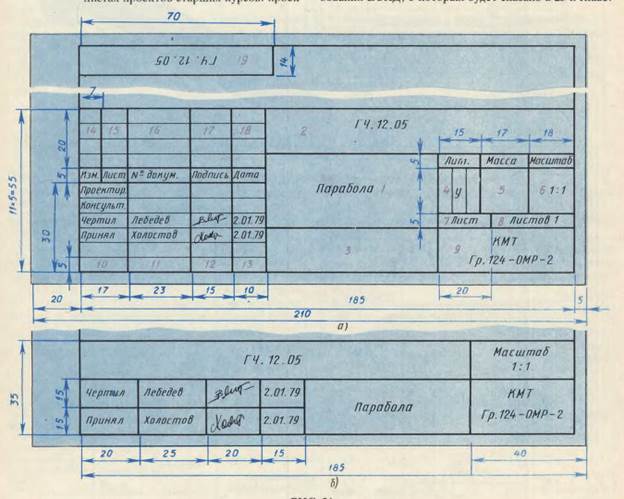 70
ГЧ. 12. 05 19
14
7
14 15 16 17 18 2 ГЧ. 12.05
20
15 17 18
5 Лит. Масса Масштаб
5 Изм. Лист № докум. Подпись Дата
Парабола 1
4 у 5 6 1:1
11×5=55
Проектир.
Консульт.
5 7 Лист 8 Листов 1
Чертил Лебедев 2.01.79
30
Принял Холостов 2.01.79
3 9 КМТ
Гр. 124-ОМР-2
5 10 11 12 13
17 23 15 10 20
20 185 5
210
а)
ГЧ. 12.05 Масштаб
1:1
35
15 Чертил Лебедев 2.01.79 Парабола КМТ
Гр. 124-ОМР-2
15 Принял Холостов 2.01.79
20 25 20 15 40
185
б)